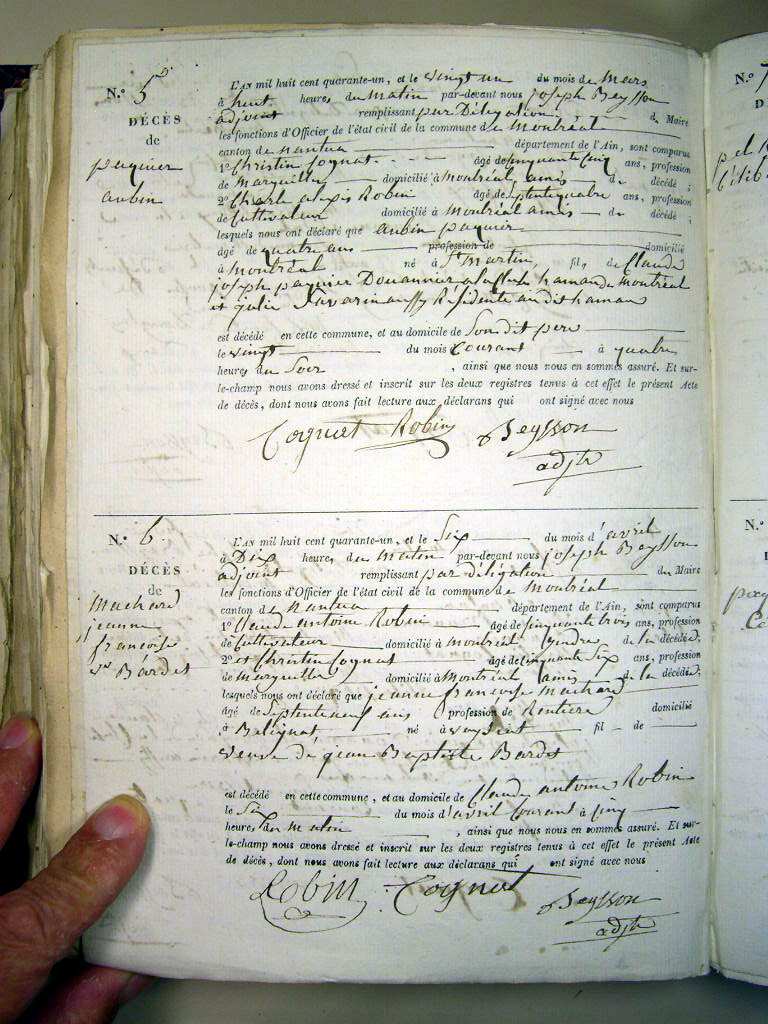 N.º 5
DÉCÈS
de
paquier
aubin
L'AN mil huit cent quarante-un, et le vingt un du mois de Mars
à huit heures du Matin par-devant nous joseph Beysson
adjoint remplissant par Délégation du Maire
les fonctions d'Officier de l'état civil de la commune de Montréal
canton de nantua département de l'Ain, sont comparus
1º Christin Cognat âgé de Cinquante Cinq ans, profession
de Marguiller domicilié à Montréal amis du décédé ;
2º Charle alexis Robin âgé de Septente quatre ans, profession
de Cultivateur domicilié à Montréal amis du décédé ;
lesquels nous ont déclaré que aubin paquier
âgé de quatre ans profession de domicilié
à Montréal né à St Martin, fil, de Claude
joseph paquier Douannier a la hameau de Montréal
et julie Résidente au dit hameau
est décédé en cette commune, et au domicile de Son dit pere
le vingt du mois Courant à quatre
heures du Soir , ainsi que nous nous en sommes assuré. Et sur-
le-champ nous avons dressé et inscrit sur les deux registres tenus à cet effet le présent Acte
de décès, dont nous avons fait lecture aux déclarans qui ont signé avec nous
Cognat Robin Beysson
adjt
N.º 6
DÉCÈS
de
Machard
jeanne
francoise
ve Bardet
L'AN mil huit cent quarante-un, et le Six du mois d'avril
à Dix heures du Matin par-devant nous joseph Beysson
adjoint remplissant par délégation du Maire
les fonctions d'Officier de l'état civil de la commune de Montréal
canton de nantua département de l'Ain, sont comparus
1º Claude antoine Robin âgé de Cinquante trois ans, profession
de Cultivateur domicilié à Montréal gendre de la décédée;
2º et Christin Cognat âgé de Cinquante Six ans, profession
de Marguiller domicilié à Montréal amis de la décédé;
lesquels nous ont déclaré que jeanne francoise Machard
âgé de Septenteneuf ans profession de Rentiere domicilié
à Belignat, né à veyziat fil de
veuve de jean Baptiste Bardet
est décédé en cette commune, et au domicile de Claude antoine Robin
le Six du mois d'avril Courant à Cinq
heures du Matin , ainsi que nous nous en sommes assuré. Et sur-
le-champ nous avons dressé et inscrit sur les deux registres tenus à cet effet le présent Acte
de décès, dont nous avons fait lecture aux déclarans qui ont signé avec nous
Robin Cognat Beysson
adjt
N.º
D
N.º